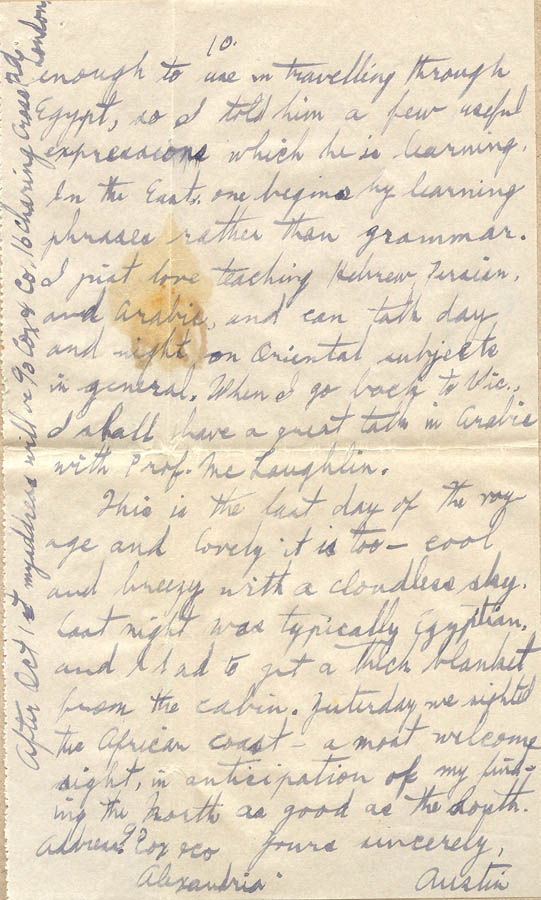 10.
enough to use in travelling through
Egypt, so I told him a few useful
expressions which he is learning.
In the East, one begins by learning
phrases rather than grammar.
I just love teaching Hebrew, Persian,
and Arabic, and can talk day
and night on Oriental subjects
in general. When I go back to Vic.,
I shall have a great talk in Arabic
with Prof. McLaughlin.
This is the last day of the voy-
age and lovely it is too - cool
and breezy with a cloudless sky.
Last night was typically Egyptian,
and I had to get a thick blanket
from the cabin. Yesterday we sighted
the African coast - a most welcome
sight, in anticipation of my find-
ing the North as good as the South.
Yours sincerely,
Austin
Address c/o Cox & Co
Alexandria
After Oct 1st my address will be c/o Cox & Co, 16 Charing Cross Rd.
London